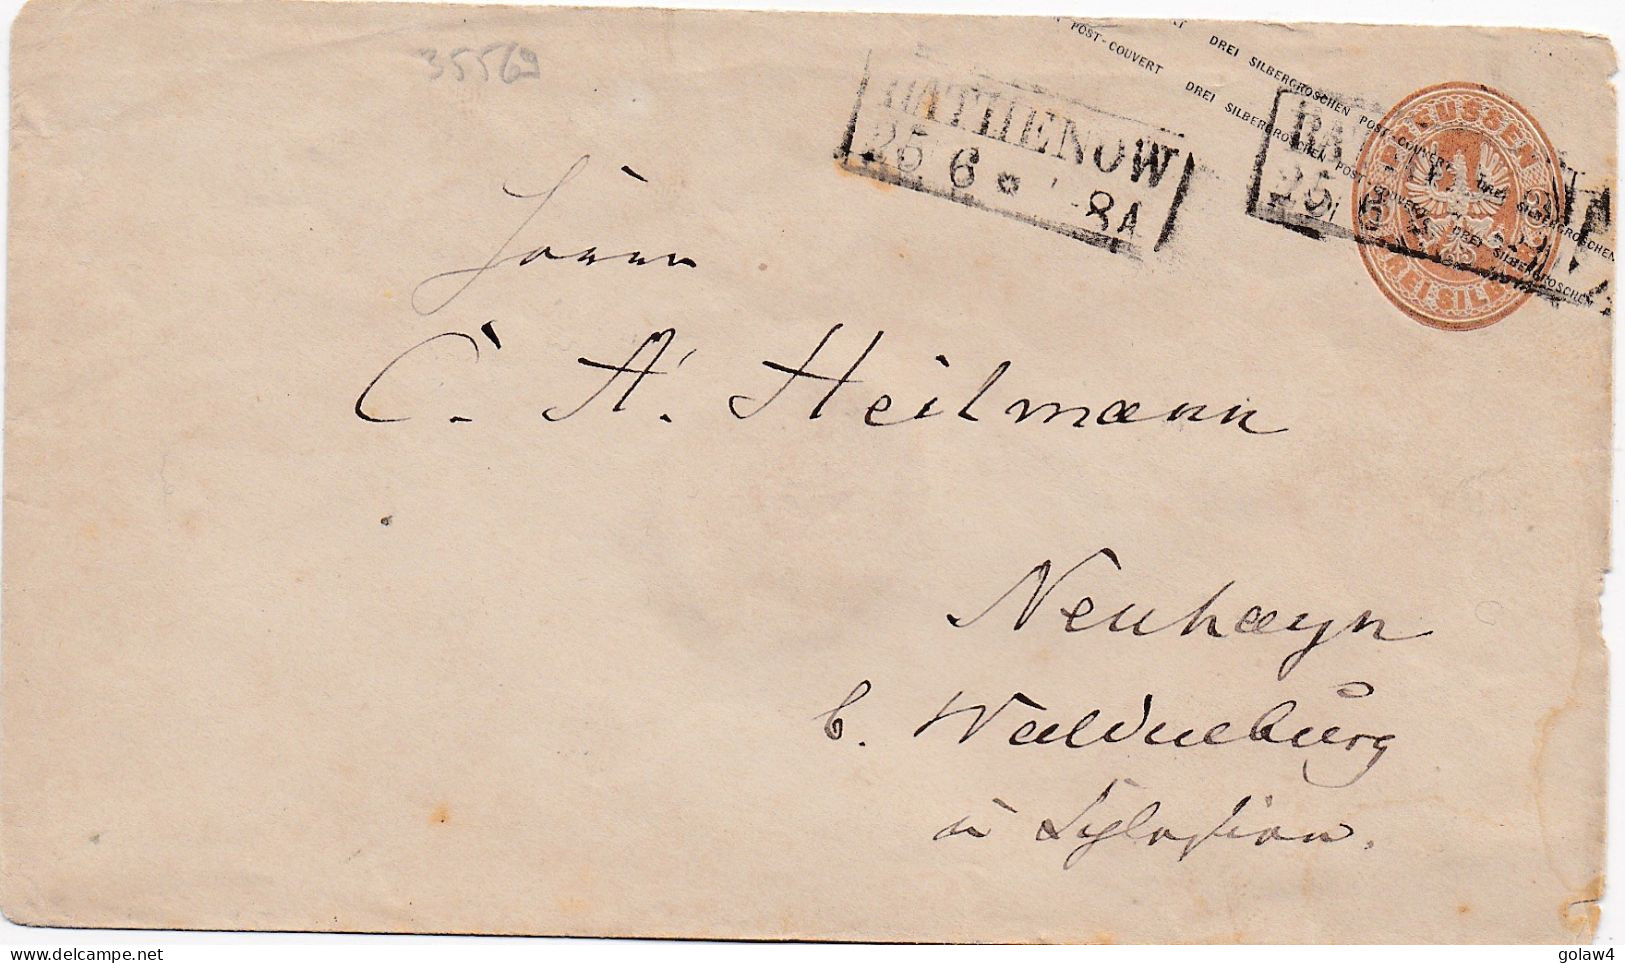 35569
POST-COUVERT DREI SILBERGROSCHEN POST-COUVERT DREI SILBERGROSCHEN
DREI SILBERGROSCHEN POST-COUVERT DREI SILBERGROSCHEN
RATHENOW
25 6 * 8A
RA
25
PREUSSEN
DREI SILB
3
C. A. Heilmann
Neuhayn
b. Waldenburg
in Schlesien.
delcampe.net
golaw4